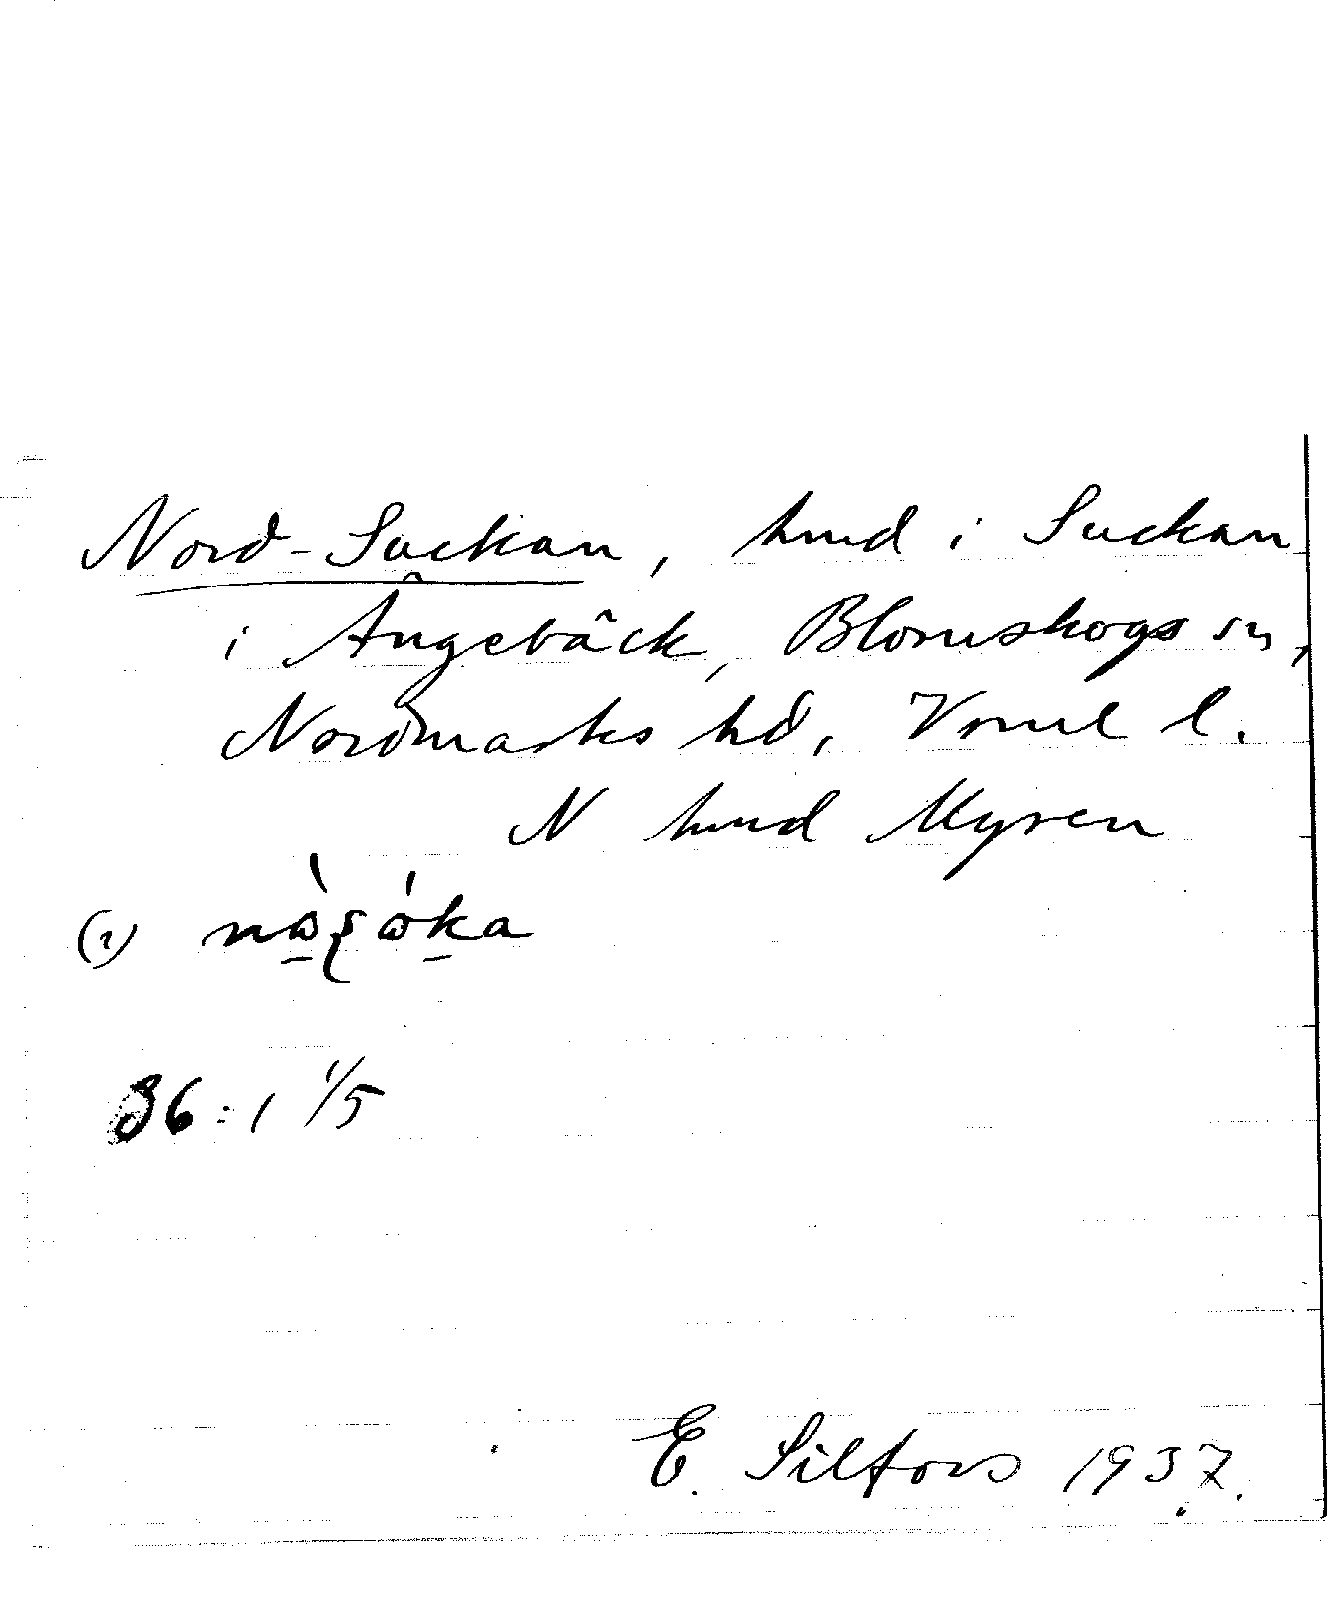 Nord-Suckan, hmd i Suckan
i Ångebäck, Blomskogs sn,
Nordmarks hd, Vrml l.
N hmd Myren
(1)
36:1 1/5
E. Silfors 1937.